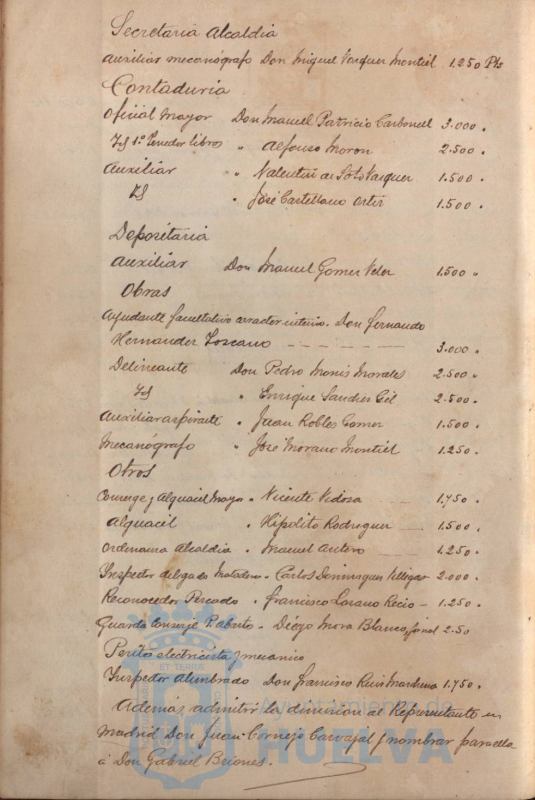 Secretaria Alcaldia
Auxiliar mecanógrafo Don Miguel Vazquez Montiel 1.250 Pts
Contaduria
Oficial Mayor Don Manuel Patricio Carbonell 3.000 "
Id 1º Tenedor libros " Alfonso Moron 2.500 "
Auxiliar " Valentin de Soto Vazquez 1.500 "
Id " José Castellano Ortiz 1.500 "
Depositaria
Auxiliar Don Manuel Gomez Velez 1.500 "
Obras
Ayudante facultativo caracter interino. Don Fernando
Hernandez Toscano 3.000 "
Delineante Don Pedro Monis Morales 2.500 "
Id " Enrique Sanchez Gil 2.500 "
Auxiliar aspirante " Juan Robles Gomez 1.500 "
Mecanógrafo " José Morano Montiel 1.250 "
Otros
Conserge y Alguacil Mayor " Vicente Vidosa 1.750 "
Alguacil " Hipolito Rodriguez 1.500 "
Ordenanza Alcaldia " Manuel Antero 1.250 "
Inspector delegado Matadero " Carlos Dominguez Villegas 2.000 "
Reconocedor Pescado " Francisco Lozano Recio 1.250 "
Guarda Conserje P. abasto " Diego Mora Blanco, jornal 2.50
Perito electricista y mecanico
Inspector alumbrado Don Francisco Ruiz Marchena 1.750 "
Además admitir la dimision al Representante en
Madrid Don Juan Cornejo Carvajal y nombrar para ella
á Don Gabriel Briones.
Ayuntamiento de
HUELVA